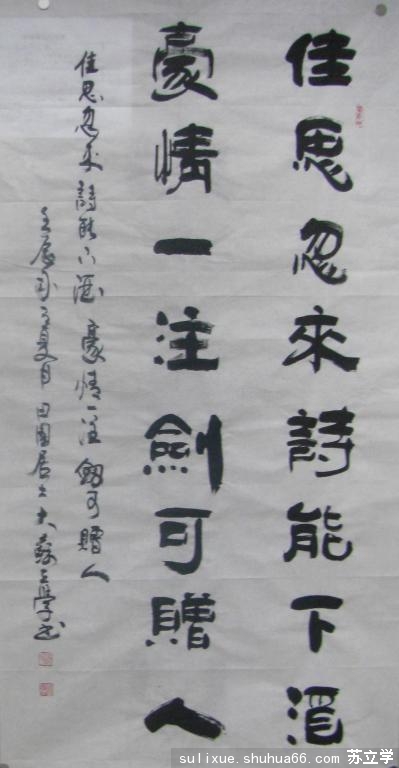 佳思忽來詩能下酒
豪情一注劍可贈人
佳思忽來詩能下酒豪情一注劍可贈人
壬辰年夏月田園居士大蘇立學書
sulixue.shuhua66.com 苏立学